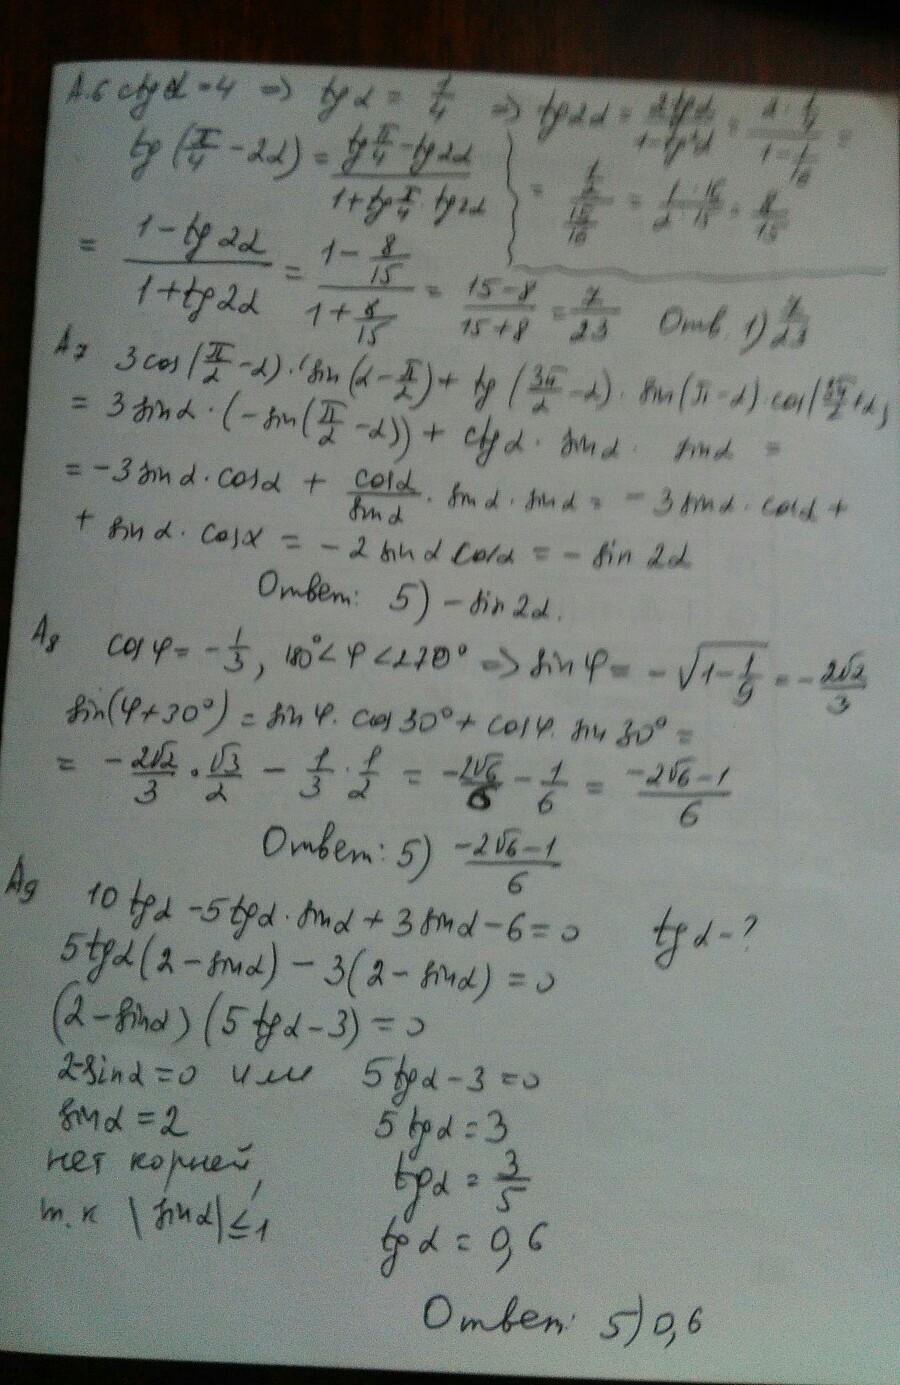 A.6 ctgα = 4 => tgα = 1/4 => tg2α = 2tgα/(1-tg²α) = (2·1/4)/(1-1/16) =
= (1/2)/(15/16) = 1/2 · 16/15 = 8/15
tg(π/4 - 2α) = (tg π/4 - tg2α)/(1 + tg π/4 · tg2α)
= (1 - tg2α)/(1 + tg2α) = (1 - 8/15)/(1 + 8/15) = (15-8)/(15+8) = 7/23 Отв. 1) 7/23
A7 3cos(π/2 - α)·sin(α - π/2) + tg(3π/2 - α)·sin(π - α)·cos(
= 3sinα·(-sin(π/2 - α)) + ctgα · sinα · sinα =
= -3sinα·cosα + cosα/sinα · sinα · sinα = -3sinα·cosα +
+ sinα·cosα = -2sinαcosα = -sin2α
Ответ: 5) -sin2α.
A8 cosφ = -1/3, 180° < φ < 270° => sinφ = -√(1 - 1/9) = -2√2/3
sin(φ+30°) = sinφ·cos30° + cosφ·sin30° =
= -2√2/3 · √3/2 - 1/3 · 1/2 = -2√6/6 - 1/6 = (-2√6-1)/6
Ответ: 5) (-2√6-1)/6
A9 10tgα - 5tgα·sinα + 3sinα - 6 = 0 tgα - ?
5tgα(2-sinα) - 3(2-sinα) = 0
(2-sinα)(5tgα-3) = 0
2-sinα = 0 или 5tgα - 3 = 0
sinα = 2 5tgα = 3
нет корней, tgα = 3/5
т.к |sinα| ≤ 1 tgα = 0,6
Ответ: 5) 0,6